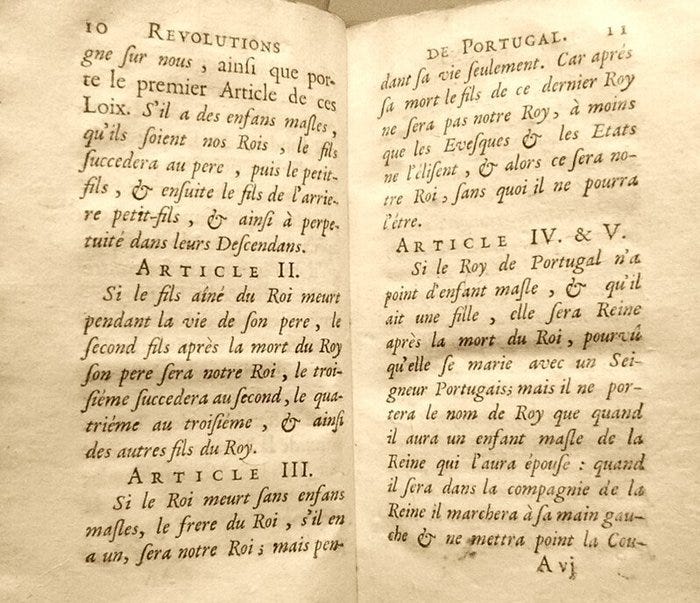 10 REVOLUTIONS
gne ſur nous, ainſi que por-
te le premier Article de ces
Loix. S'il a des enfans maſles,
qu'ils ſoient nos Rois, le fils
ſuccedera au pere, puis le petit-
fils, & enſuite le fils de l'arrie-
re petit-fils, & ainſi à perpe-
tuité dans leurs Deſcendans.
ARTICLE II.
Si le fils aîné du Roi meurt
pendant la vie de ſon pere, le
ſecond fils après la mort du Roy
ſon pere ſera notre Roi, le troi-
ſiéme ſuccedera au ſecond, le qua-
triéme au troiſiéme, & ainſi
des autres fils du Roy.
ARTICLE III.
Si le Roi meurt ſans enfans
maſles, le frere du Roi, s'il en
a un, ſera notre Roi; mais pen-
DE PORTUGAL. 11
dant ſa vie ſeulement. Car aprés
ſa mort le fils de ce dernier Roy
ne ſera pas notre Roy, à moins
que les Eveſques & les Etats
ne l'éliſent, & alors ce ſera no-
tre Roi, ſans quoi il ne pourra
l'être.
ARTICLE IV. & V.
Si le Roy de Portugal n'a
point d'enfant maſle, & qu'il
ait une fille, elle ſera Reine
après la mort du Roi, pourvû
qu'elle ſe marie avec un Sei-
gneur Portugais; mais il ne por-
tera le nom de Roy que quand
il aura un enfant maſle de la
Reine qui l'aura épouſe : quand
il ſera dans la compagnie de la
Reine il marchera à ſa main gau-
che & ne mettra point la Cou-
A vj